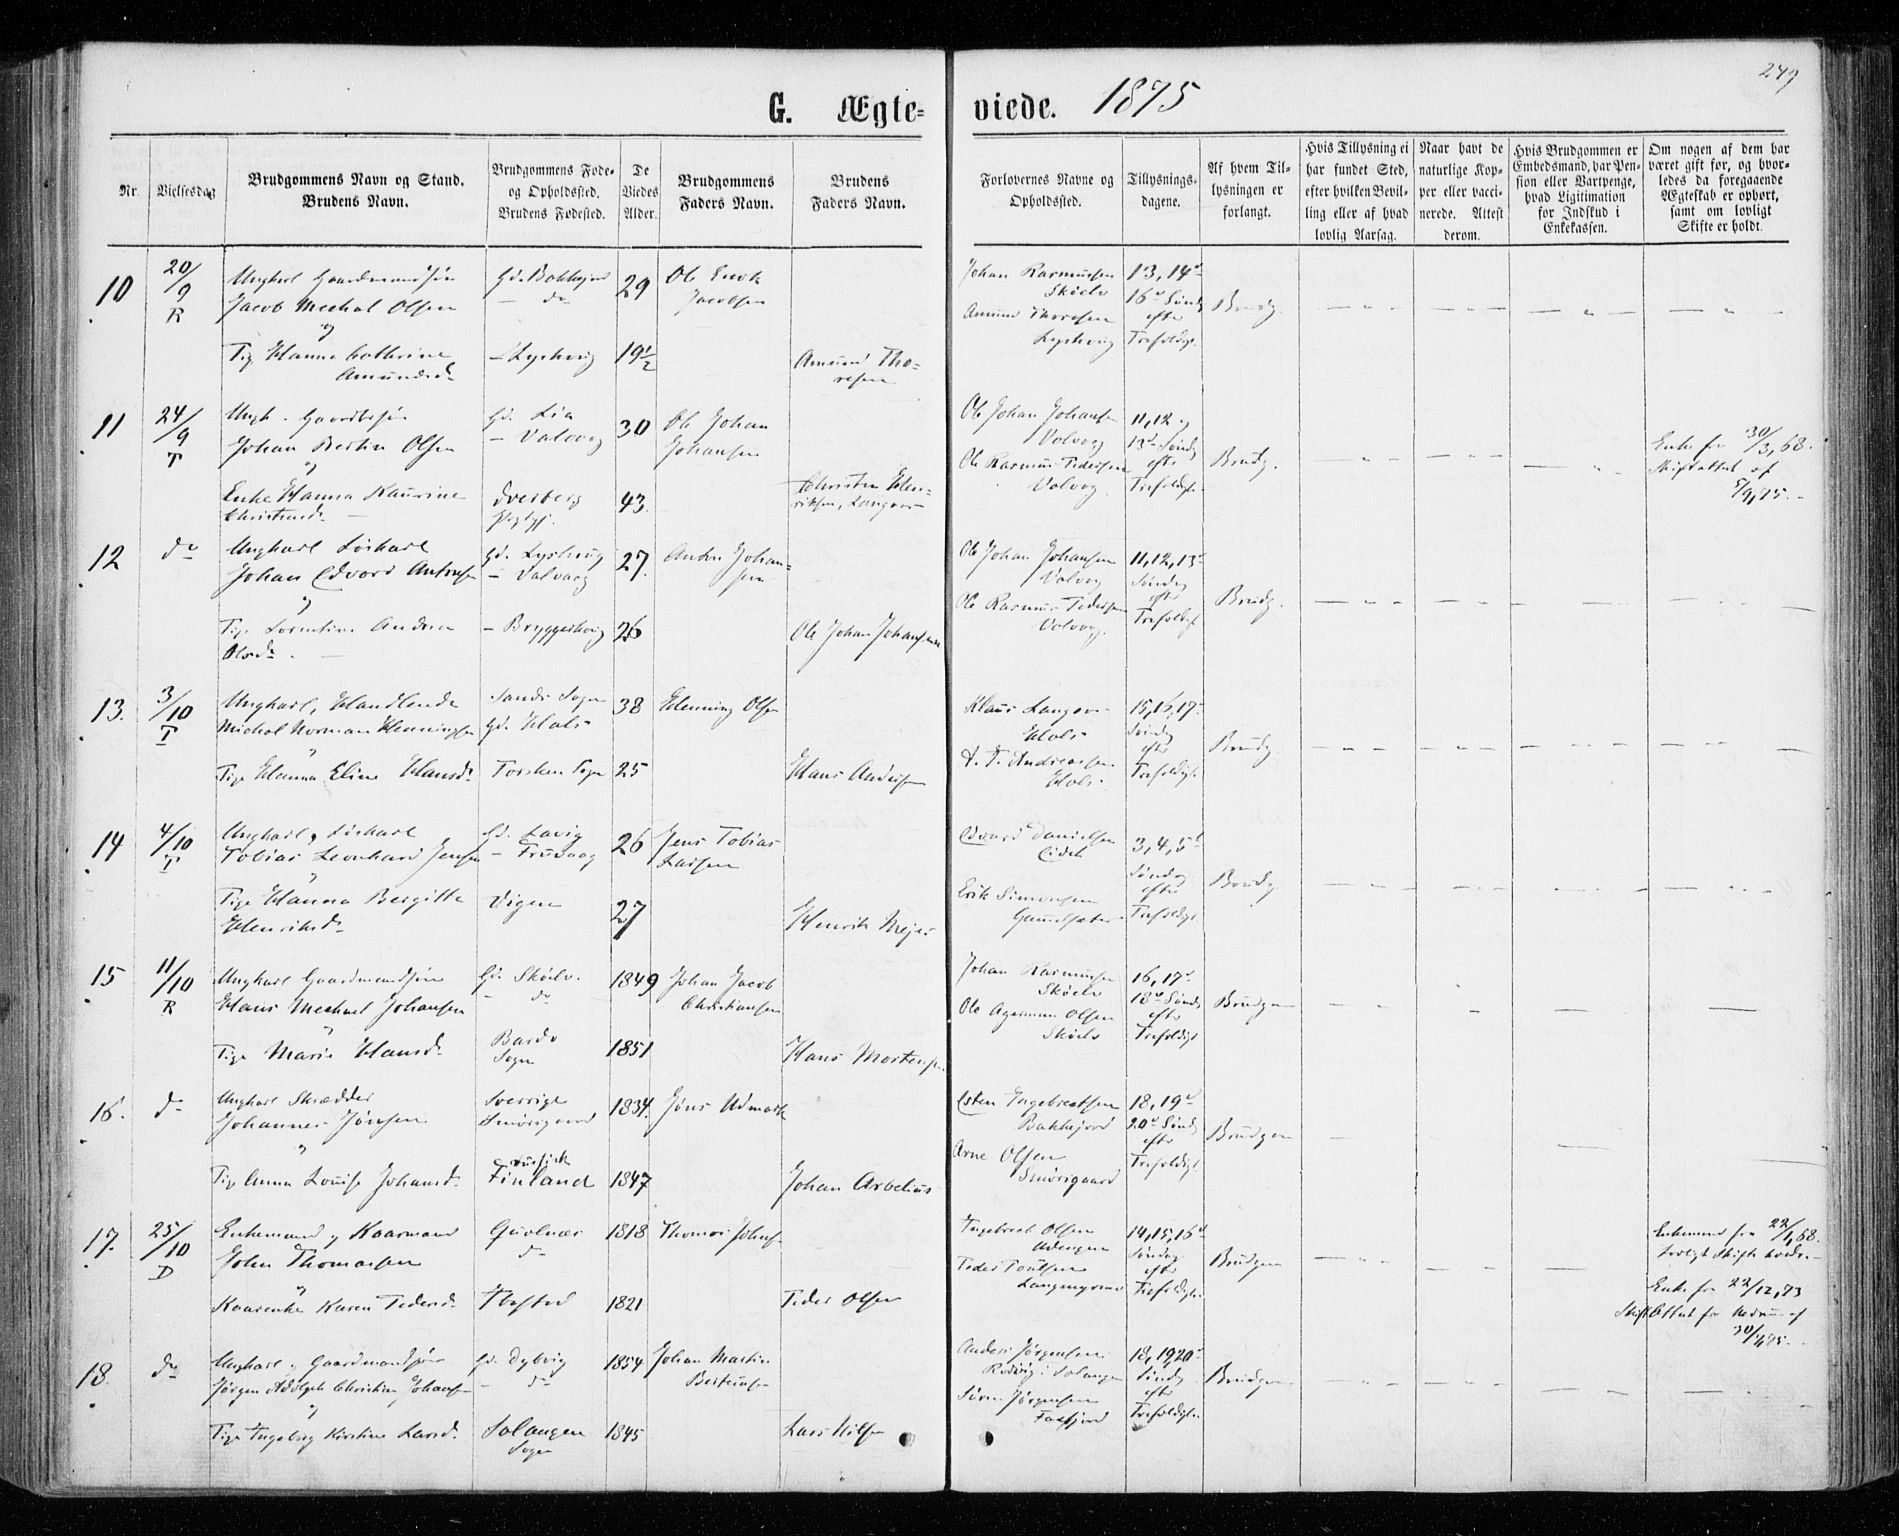 249
G. Ægte-
viede. 1875
Nr.
Vielsesdag
Brudgommens Navn og Stand.
Brudens Navn.
Brudgommens Føde-
og Opholdssted.
Brudens Fødested.
De
Viedes
Alder.
Brudgommens
Faders Navn.
Brudens
Faders Navn.
Forlovernes Navne og
Opholdssted.
Tillysnings-
dagene.
Af hvem Til-
lysningen er
forlangt.
Hvis Tillysning ei
har fundet Sted,
efter hvilken Bevil-
ling eller af hvad
lovlig Aarsag.
Naar havt de
naturlige Kop-
per eller vacci-
nerede. Attest
derom.
Hvis Brudgommen er
Embedsmand, har Pen-
sion eller Vartpenge,
hvad Ligitimation
for Indskud i
Enkekassen.
Om nogen af dem har
været gift før, og hvor-
ledes da foregaaende
Ægteskab er ophørt,
samt om lovligt
Skifte er holdt.
10 20/9 R
Ungkarl Gaardmandssøn
Jacob Mechal Olsen
og
Pige Hanna Cathrine
Amundsd.
Gd. Bakkejord
— do
29
19 1/2
Ole Enok
Jacobsen
Amund Tho-
resen
Johan Rasmussen
Skøelv
Amund Thoresen
13, 14de
16de Søndg
efter
Trefoldigh.
Brudg.
11 24/9 T
Ungk. Gaardbrsøn
Johan Bertin Olsen
og
Enke Hanna Kaurine
Christensd.
Gd. Lia
— Valvog
Dverberg
Prgj.
30
43
Ole Johan
Johansen
Christen Hen-
riksen,
Ole Johan Johansen
Valvog
Ole Rasmus Pedersen
Valvog.
11, 12 og
13de Søndg
efter
Trefoldigh.
Brudg.
Enke fra 30/3, 68.
Skifteattest af
5/9, 75.
12 do
Ungkarl Løskarl
Johan Edvard Antonsen
og
Pige Lorentine Andrea
Olsd.
— Valvaag
— Bryggerhaug
27.
26
Anton Johan-
sen
Ole Johan Johansen
Ole Johan Johansen
Valvog
Ole Rasmus Pedersen
Valvog.
11, 12, 13de
Søndag
efter
Trefoldigh.
Brudg.
13. 3/10 T
Ungkarl, Handlende
Michal Norman Henningsen
og
Pige Hanna Eline Hansd.
Sands Sogn
Gd. Hals
Torsken Sogn
38
25
Henning Olsen
Hans Andersen
Klaus
Hals
Andreassen
Hals
15, 16, 17de
Søndg
efter
Trefoldigh.
Brudg.
14 4/10 T
Ungkarl, Løskarl
Tobias Leonhard Jensen
og
Pige Hanna Bergitte
Henriksd.
Gd. Lavig
Vigen
26
27
Jens Tobias
Larsen
Henrik Mejer
Edvard Danielsen
Eidet
Erik Simonsen
3, 4, 5te
Søndag
efter
Trefoldigh.
Brudg.
15 11/10 R
Ungkarl Gaardmandssøn
Hans Mechael Johansen
og
Pige Marie Hansd.
Gd. Skøelv.
— do
Bardo
Sogn
1849
1851
Johan Jacob
Christiansen
Hans Mortensen
Johan Rasmussen
Skøelv
Ole Olsen
Skøelv
16, 17de
18de Søndg
efter
Trefoldigh.
Brudgen
16. do
Ungkarl Skrædder
Johannes Jönsen
og
Pige Anna Louise Johansd.
Sverrige
Smörsgaard
russisk
Finland
1834.
1847
Jöns Udmark
Johan Arbelius
Esten Ingebregtsen
Bakkejord
Arne Olsen
Smörsgaard
18, 19de
20de Søndg
efter
Trefoldigh.
Brudgen
17. 25/10 D
Enkemand og Kaarmand
John Thomassen
og
Kaarenke Karen Pedersd.
do
Ibestad
1818
1821
Thomas Johns.
Peder Olsen
Ingebregt Olsen
Peder Poulsen
14, 15, 16de
Søndag
efter
Trefoldigh.
Brudgen
Enkemand fra 22/1, 68.
Lovligt Skifte holdt.
Enke fra 22/12, 73
Skifteattest
18. do
Ungkarl og Gaardmandssøn
Jørgen Adolph Christian Johansen
og
Pige Ingeborg Kirstine Larsd.
Gd. Dybvig
— do
Salangen
Sogn
1854
1845
Johan Martin
Berteusen
Lars Nilsen
Anders Jørgensen
Rødvig i Salangen
Søren Jørgensen
18, 19, 20de
Søndg
efter
Trefoldigh.
Brudgen